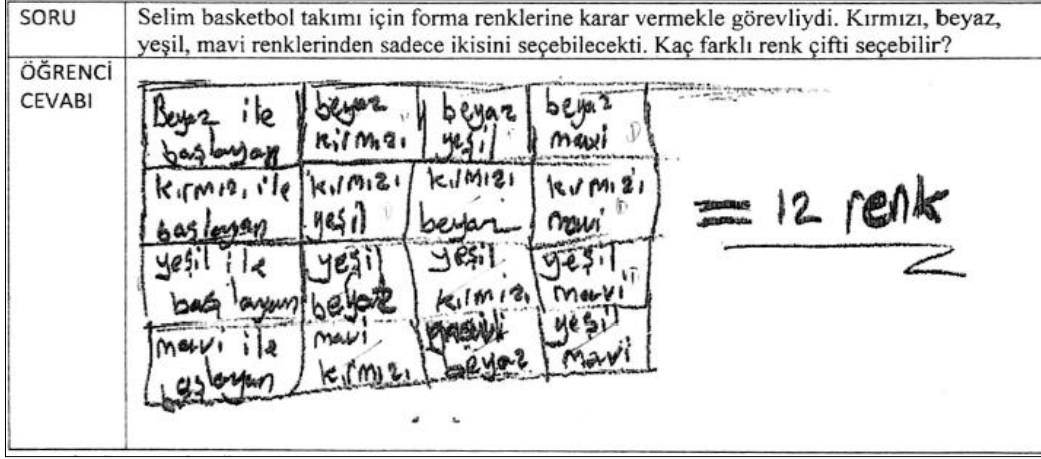 SORU
Selim basketbol takımı için forma renklerine karar vermekle görevliydi. Kırmızı, beyaz,
yeşil, mavi renklerinden sadece ikisini seçebilecekti. Kaç farklı renk çifti seçebilir?
ÖĞRENCİ
CEVABI
Beyaz ile
başlayan
beyaz
kırmızı
beyaz
yeşil
beyaz
mavi
kırmızı ile
başlayan
kırmızı
yeşil
kırmızı
beyaz
kırmızı
mavi
yeşil ile
başlayan
yeşil
beyaz
yeşil
kırmızı
yeşil
mavi
mavi ile
başlayan
mavi
kırmızı
beyaz
yeşil
mavi
= 12 renk